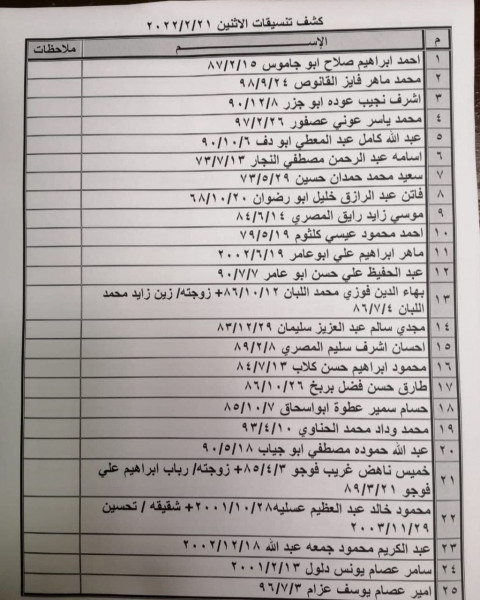 كشف تنسيقات الاثنين ٢٠٢٢/٢/٢١
م الإســـــــم ملاحظات
١ احمد ابراهيم صلاح ابو جاموس ٨٧/٢/١٥
٢ محمد ماهر فايز القانوص ٩٨/٩/٢٤
٣ اشرف نجيب عوده ابو جزر ٩٠/١٢/٨
٤ محمد ياسر عوني عصفور ٩٧/٢/٢٦
٥ عبد الله كامل عبد المعطي ابو دف ٩٠/١٠/٦
٦ اسامه عبد الرحمن مصطفي النجار ٧٣/٧/١٣
٧ سعيد محمد حمدان حسين ٧٣/٥/٢٩
٨ فاتن عبد الرازق خليل ابو رضوان ٦٨/١٠/٢٠
٩ موسي زايد رايق المصري ٨٤/٦/١٤
١٠ احمد محمود عيسي كلثوم ٧٩/٥/١٩
١١ ماهر ابراهيم علي ابوعامر ٢٠٠٢/٦/١٩
١٢ عبد الحفيظ علي حسن ابو عامر ٩٠/٧/٧
١٣ بهاء الدين فوزي محمد اللبان ٨٦/١٠/١٢+ زوجته/ زين زايد محمد
اللبان ٨٦/٧/٤
١٤ مجدي سالم عبد العزيز سليمان ٨٣/١٢/٢٩
١٥ احسان اشرف سليم المصري ٨٩/٢/٨
١٦ محمود ابراهيم حسن كلاب ٨٤/٧/١٣
١٧ طارق حسن فضل بربخ ٨٦/١٠/٢٦
١٨ حسام سمير عطوة ابواسحاق ٨٥/١٠/٧
١٩ محمد وداد محمد الحناوي ٩٣/٤/١٠
٢٠ عبد الله حموده مصطفي ابو جياب ٩٠/٥/١٨
٢١ خميس ناهض غريب فوجو ٨٥/٤/٣+ زوجته/ رباب ابراهيم علي
فوجو ٨٩/٣/٢١
٢٢ محمود خالد عبد العظيم عسليه٢٠٠١/١٠/٢٨+ شقيقه / تحسين
٢٠٠٣/١١/٢٩
٢٣ عبد الكريم محمود جمعه عبد الله ٢٠٠٢/١٢/١٨
٢٤ سامر عصام يونس دلول ٢٠٠١/٢/١٣
٢٥ امير عصام يوسف عزام ٩٦/٧/٣